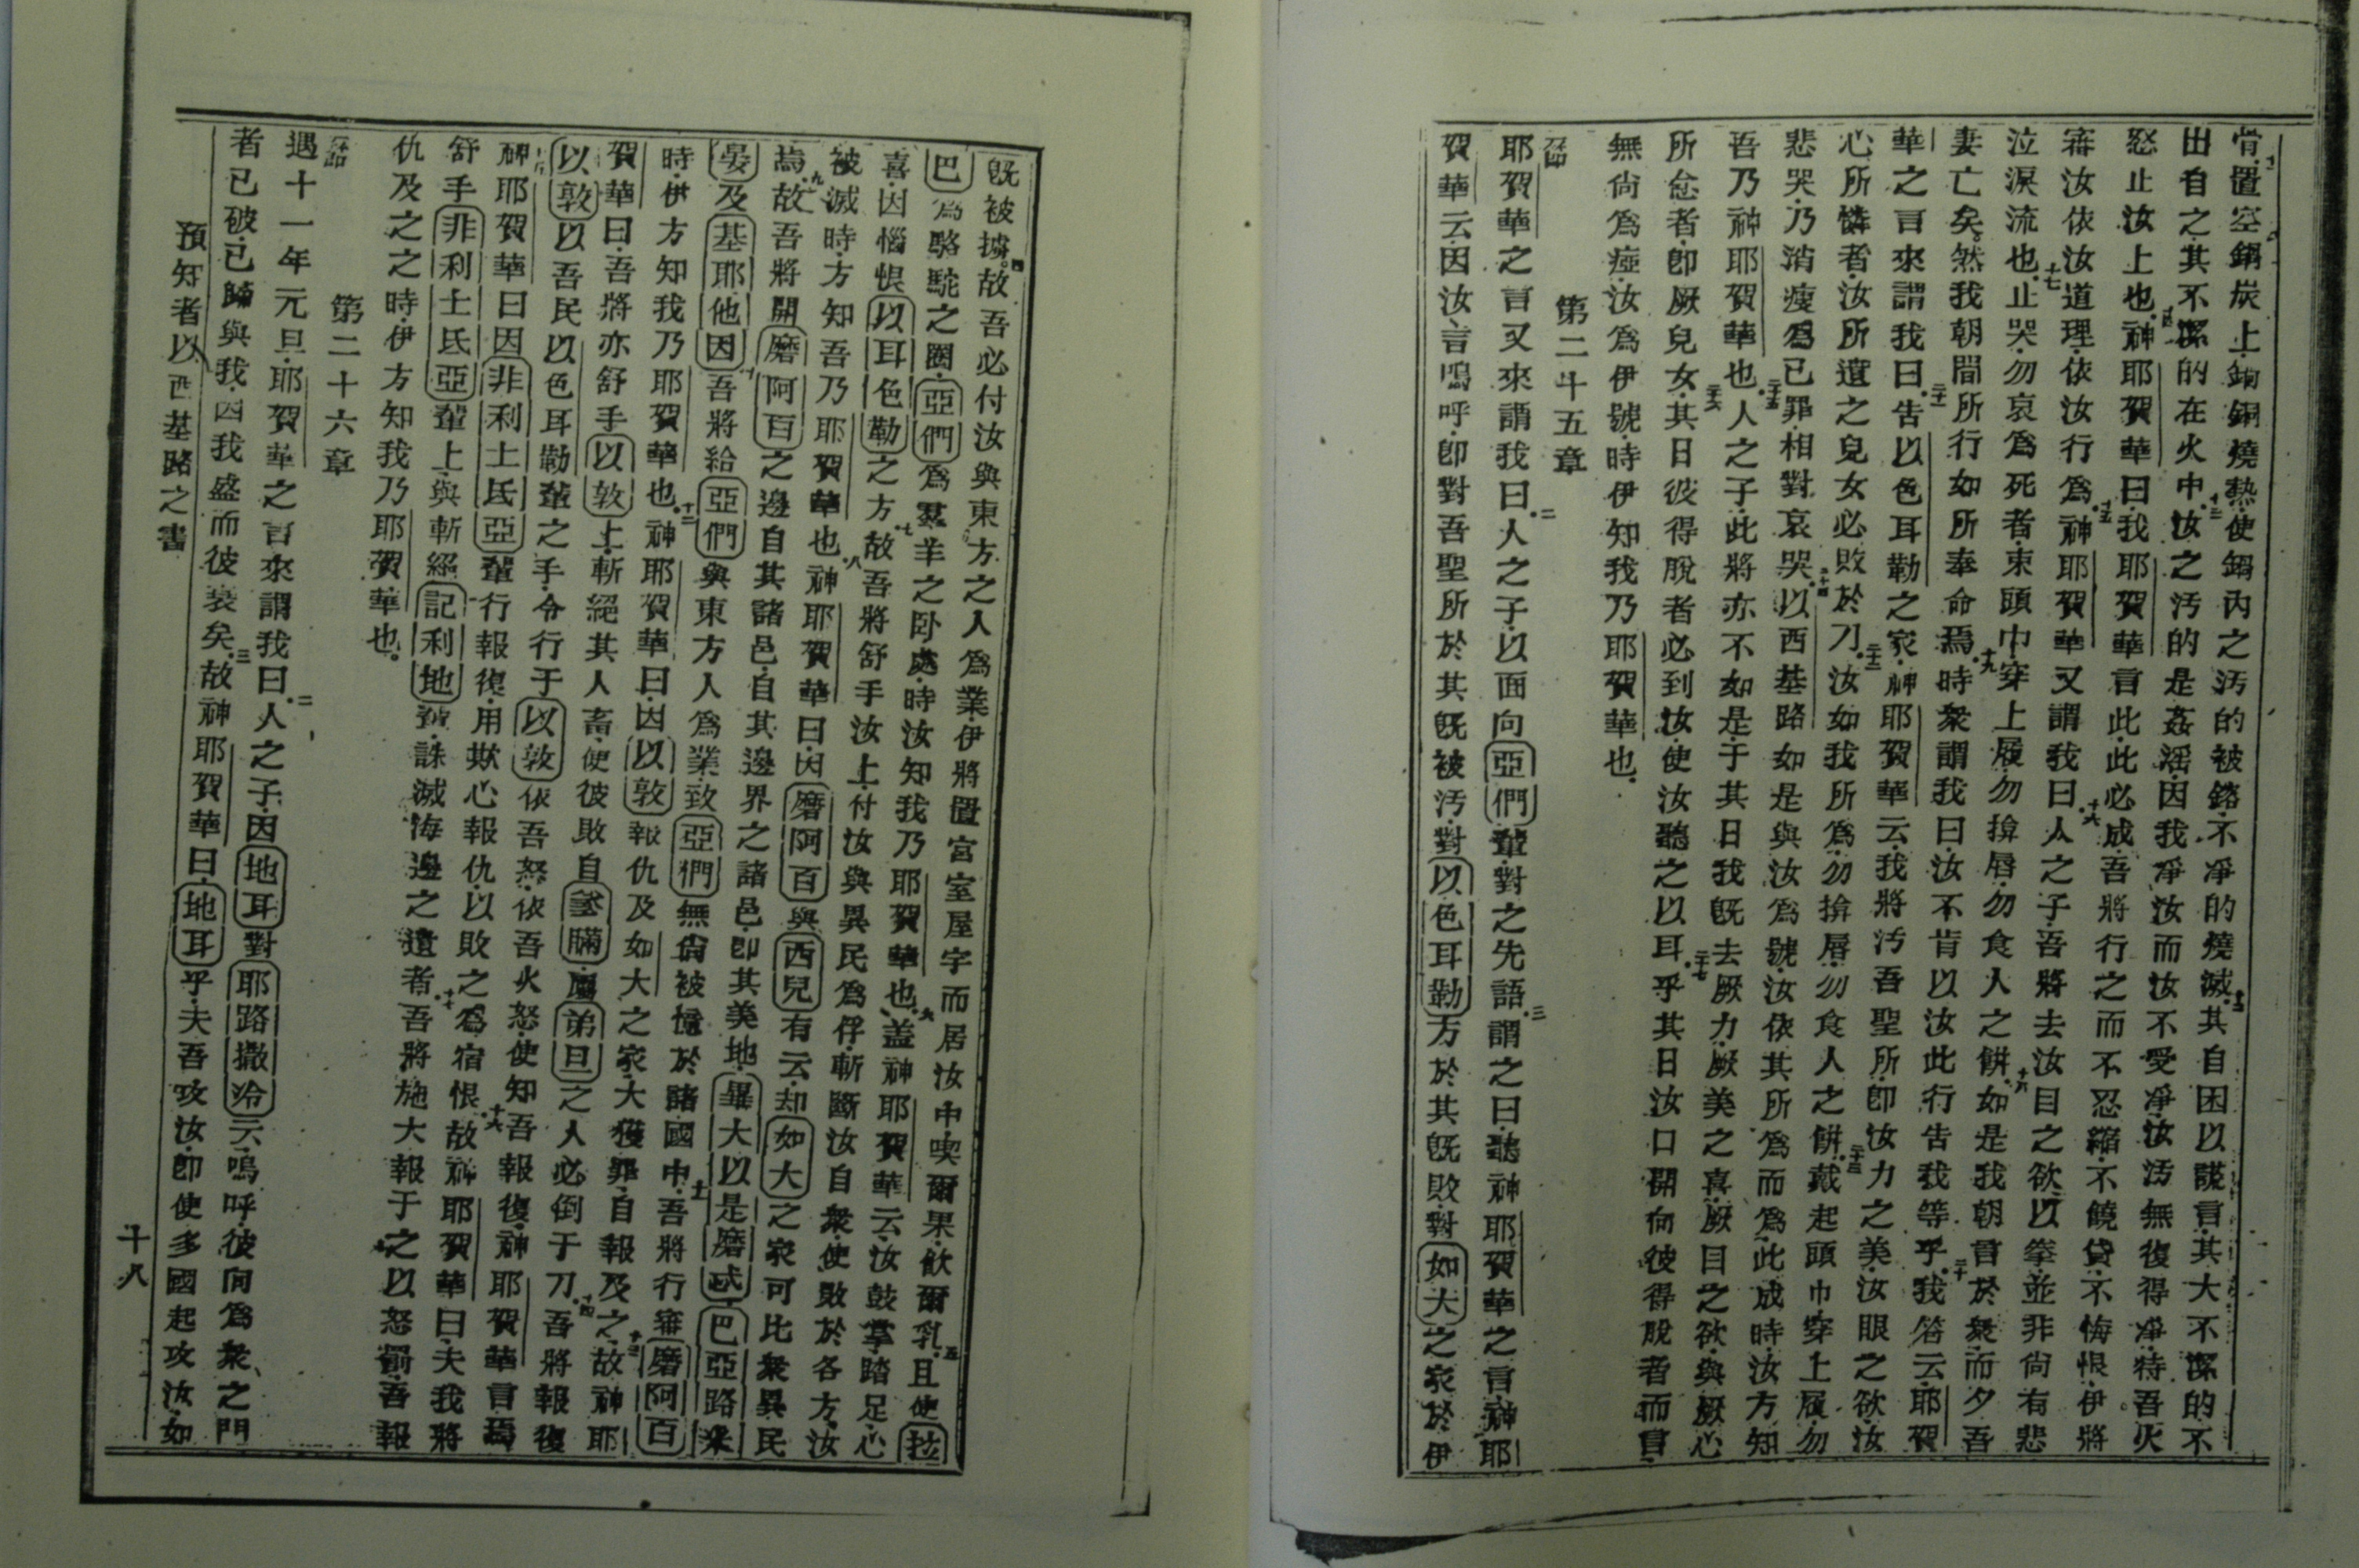 骨置空鍋炭上銅鍋燒熱使鍋內之污的被鎔不凈的燒滅十二其自困以謊言其大不潔的不
出自之其不潔的在火中十三汝之汚的是姦滛因我凈汝而汝不受凈汝汚無復得凈待吾火
怒止汝上也十四神耶賀華曰我耶賀華言此此必成吾將行之而不忍縮不饒貸不悔恨伊將
審汝依汝道理依汝行爲十五神耶賀華又謂我曰十六人之子吾將去汝目之欲以拳並非尙有悲
泣淚流也十七止哭勿哀爲死者束頭巾穿上履勿揜唇勿食人之餅十八如是我朝言於衆而夕吾
妻亡矣然我朝間所行如所奉命焉十九時衆謂我曰汝不肯以汝此行告我等乎二十我答云耶賀
華之言來謂我曰二十一告以色耳勒之家神耶賀華云我將汚吾聖所卽汝力之美汝眼之欲汝
心所憐者汝所遺之兒女必敗於刀二十二汝如我所爲勿揜唇勿食人之餅二十三戴起頭巾穿上履勿
悲哭乃消瘦爲已罪相對哀哭二十四以西基路如是與汝爲號汝依其所爲而爲此成時汝方知
吾乃神耶賀華也二十五人之子此將亦不如是于其日我旣去厥力厥美之喜厥目之欲與厥心
所念者卽厥兒女二十六其日彼得脫者必到汝使汝聽之以耳乎二十七其日汝口開向彼得脫者而言
無尙爲瘂汝爲伊號時伊知我乃耶賀華也
第二十五章
耶賀華之言又來謂我曰二人之子以面向亞們輩對之先語三謂之曰聽神耶賀華之言神耶
賀華云因汝言嗚呼卽對吾聖所於其旣被汚對以色耳勒方於其旣敗對如大之家於伊
旣被擄四故吾必付汝與東方之人爲業伊將置宮室屋宇而居汝中喫爾果飲爾乳五且使拉
巴爲駱駝之圈亞們爲羣羊之卧處時汝知我乃耶賀華也六盖神耶賀華云汝鼓掌踏足心
喜因惱恨以耳色勒之方七故吾將舒手汝上付汝與異民爲俘斬斷汝自衆使敗於各方汝
被滅時方知吾乃耶賀華也八神耶賀華曰因磨阿百與西兒有云却如大之家可比衆異民
焉九故吾將開磨阿百之邊自其諸邑自其邊界之諸邑卽其美地畢大以是磨巴亞路米
晏及基耶他因十吾將給亞們與東方人爲業致亞們無尙被憶於諸國中十一吾將行審磨阿百
時伊方知我乃耶賀華也十二神耶賀華曰因以敦報仇及如大之家大獲罪自報及之十三故神耶
賀華曰吾將亦舒手以敦上斬絕其人畜使彼敗自瞞屬弟旦之人必倒于刀十四吾將報復
以敦以吾民以色耳勒輩之手令行于以敦依吾怒依吾火怒使知吾報復神耶賀華言焉
十五神耶賀華曰因非利士氏亞輩行報復用欺心報仇以敗之爲宿恨十六故神耶賀華曰夫我將
舒手非利士氏亞輩上與斬絕記利地輩誅滅海邊之遺者十七吾將施大報于之以怒罰吾報
仇及之之時伊方知我乃耶賀華也
第二十六章
遇十一年元旦耶賀華之言來謂我曰二人之子因地耳對耶路撒冷云嗚呼彼向爲衆之門
者已破已歸與我因我盛而彼衰矣三故神耶賀華曰地耳乎夫吾攻汝卽使多國起攻汝如
預知者以西基路之書
十八